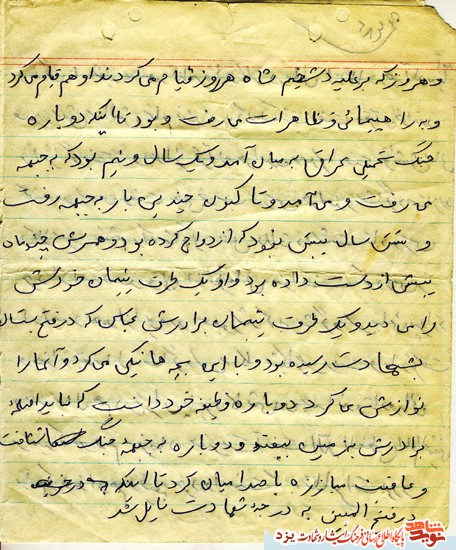 و هر روز که بر علیه دشظیم شاه هر روز قیام می کردند او هم قیام می کرد
و به راهپیمائی و تظاهرات می رفت و بود تا اینکه دوباره
جنگ تحمیلی عراق به میان آمد و یک سال و نیم بود که به جبهه
می رفت و می آمد و تا کنون چندین بار به جبهه رفت
و شش سال پیش بود که ازدواج کرده بود و همسرش چند ماه
پیش از دست داده بود و او یک طرف یتیمان خودش
را می دید و یک طرف یتیمان برادرش عباس که در فتح بستان
بشهادت رسیده بود و با این بچه ها نیکی می کرد و آنها را
نوازش می کرد دوباره وظیفه خود دانست که نباید اسلحه
برادرش به زمین بیفتد و دوباره به جبهه جنگ شتافت
و عاقبت مبارزه با صدامیان کرد تا اینکه
در فتح المبین به درجه شهادت نایل شد
نوید شاهد
پایگاه اطلاع رسانی فرهنگ ایثار و شهادت یزد